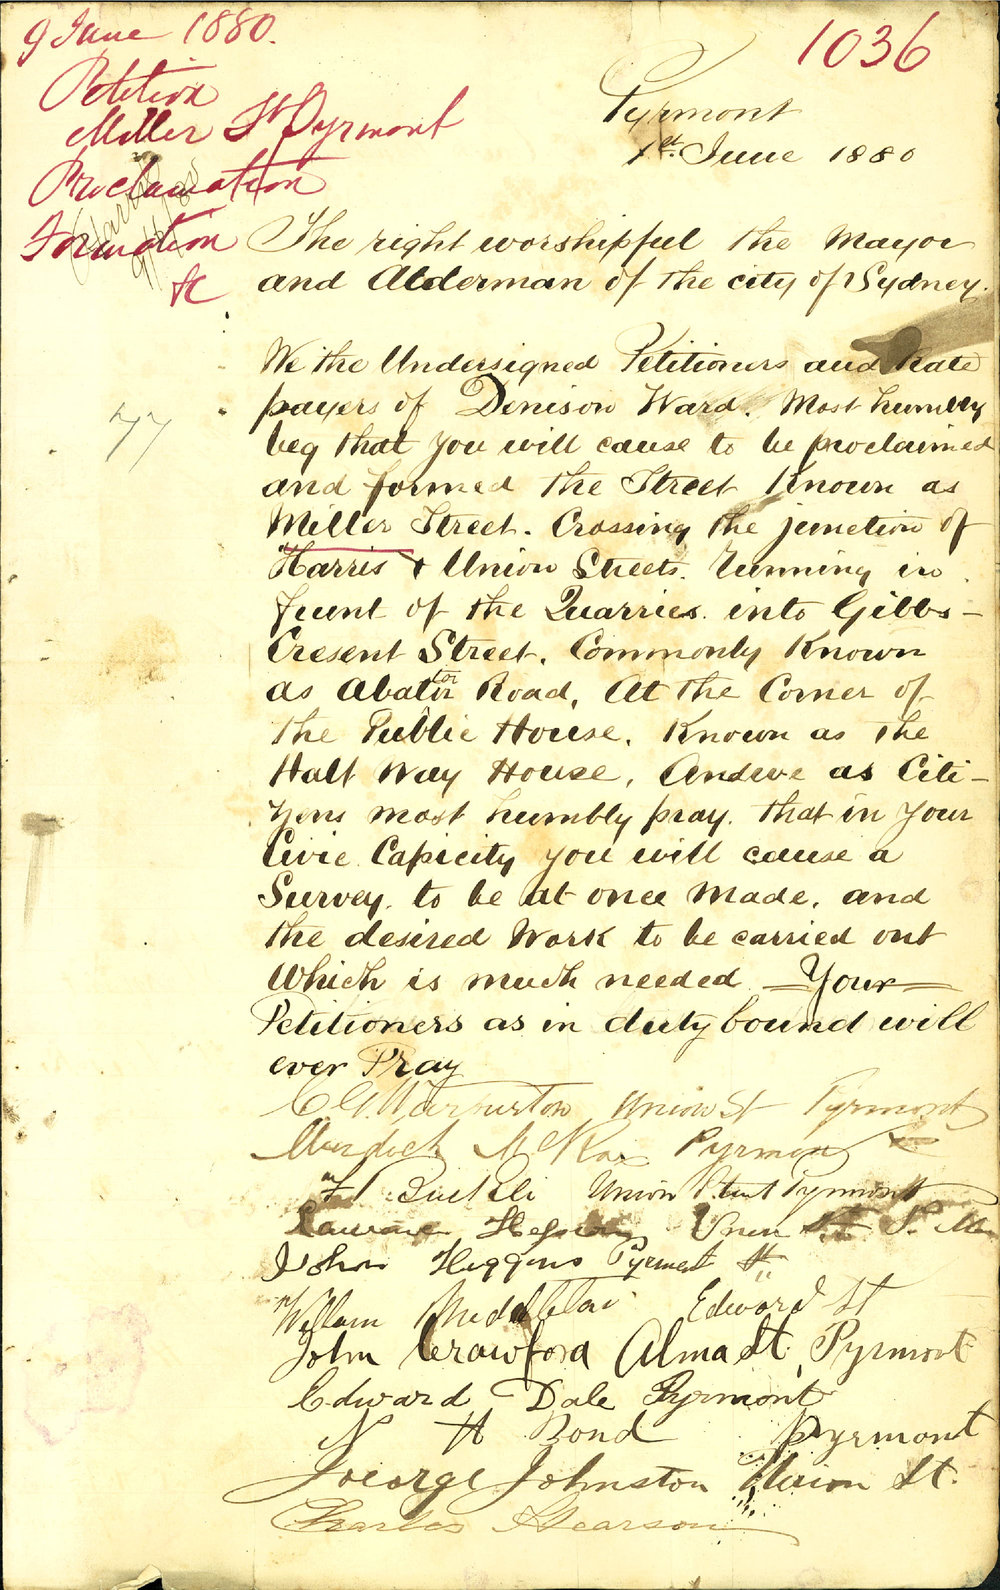 9 June 1880.
1036
Petition
Miller St Pyrmont
Proclamation
Formation
&c
Pyrmont
1st. June 1880
The right worshipful the Mayor
and Alderman of the city of Sydney.
We the Undersigned Petitioners and Rate
payers of Denison Ward. Most humbly
beg that you will cause to be proclaimed
and formed the Street Known as
Miller Street. Crossing the junction of
Harris & Union Streets. running in
frunt of the Quarries. into Gibbs-
Cresent Street. Commonly Known
as Abattoir Road, At the Corner of
the Public House. Known as the
Half Way House, Andwe as Citi-
zens most humbly pray. that in Your
Civic Capicity you will cause a
Survey. to be at once Made. and
the desired Work to be carried out
Which is much needed — Your —
Petitioners as in duty bound will
ever Pray
C G. Warburton Union St Pyrmont
Murdoch McRae Pyrmont
Union Street Pyrmont
Union St
John Higgins Pyrmont St
William Middleton Edward St
John Crawford Alma St. Pyrmont
Edward Dale Pyrmont
N H Bond Pyrmont
George Johnston Union St.
Charles Stearson
77